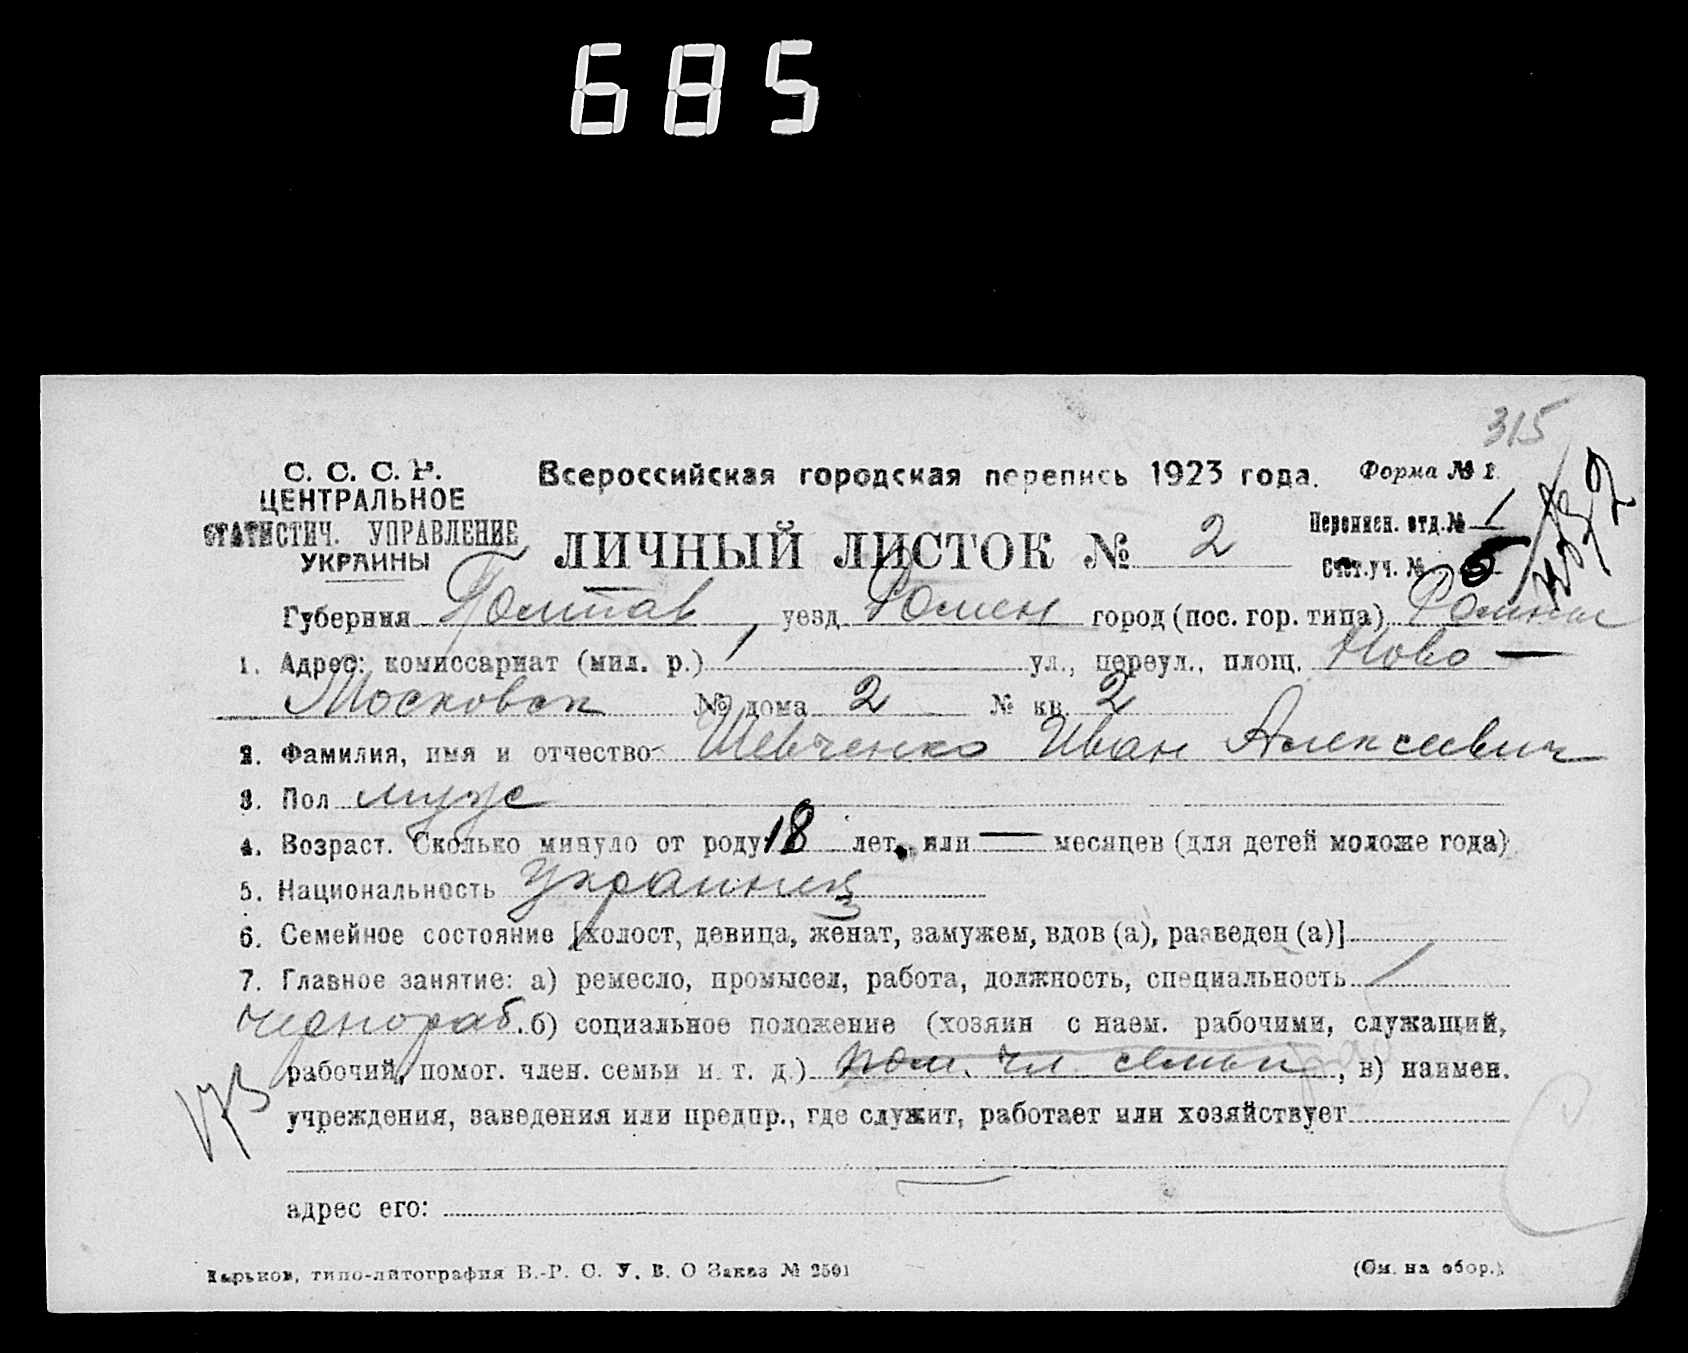 685
315
С. С. С. Р. Всероссийская городская перепись 1923 года. Форма № 1.
ЦЕНТРАЛЬНОЕ
СТАТИСТИЧ. УПРАВЛЕНИЕ
УКРАИНЫ
ЛИЧНЫЙ ЛИСТОК № 2
Переписн. отд. № 1
Счет. уч. № 5
Губерния Полтав уезд Ромен город (пос. гор. типа) Ромны
1. Адрес: комиссариат (мил. р.) ул., переул., площ. Ново —
Московск № дома 2 № кв. 2
2. Фамилия, имя и отчество Шевченко Иван Алексеевич
3. Пол муж
4. Возраст. Сколько минуло от роду 18 лет, или — месяцев (для детей моложе года)
5. Национальность Украинец
6. Семейное состояние [холост, девица, женат, замужем, вдов (а), разведен (а)]
7. Главное занятие: а) ремесло, промысел, работа, должность, специальность
чернораб. б) социальное положение (хозяин с наем. рабочими, служащий,
рабочий, помог. член. семьи и. т. д.) пом. чл. семьи, в) наимен.
учреждения, заведения или предпр., где служит, работает или хозяйствует
адрес его:
Харьков, типо-литография В.-Р. С. У. В. О Заказ № 2591 (См. на обор.)